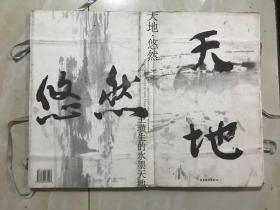 天地·悠然
天
地
悠然
王璜生的水墨天地